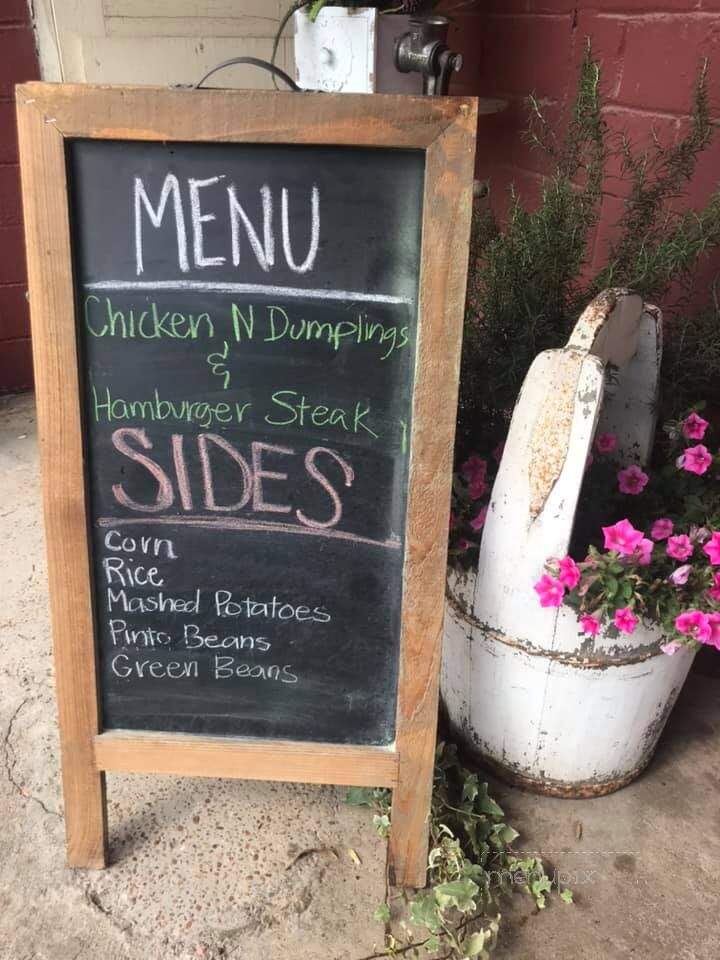 MENU
Chicken N Dumplings
&
Hamburger Steak
SIDES
Corn
Rice
Mashed Potatoes
Pinto Beans
Green Beans
menupix